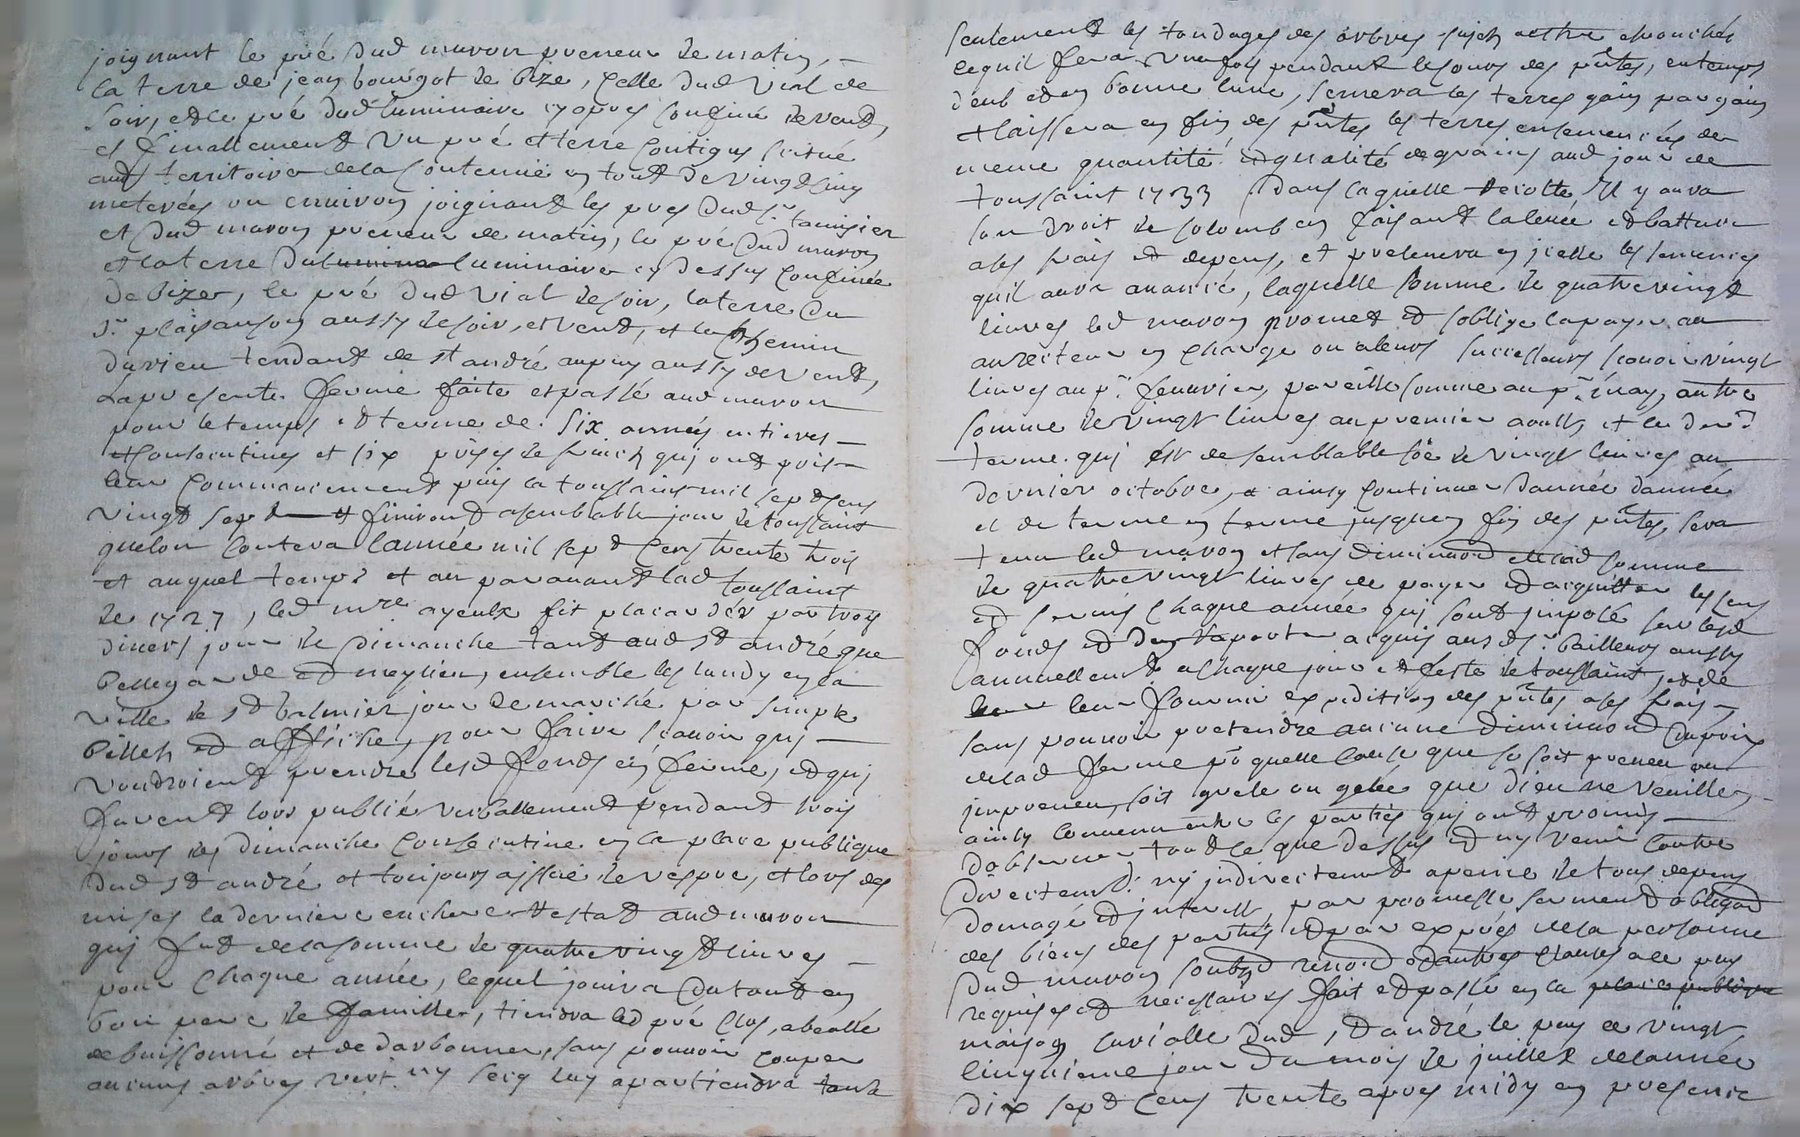 joignant le pré dud maron preneur de matin, —
la terre de jean bourgot de bize, celle dud vial de
soir, et le pré dud luminaire cy apres confiné de vend,
et finallement un pré et terre contigus scitué
aud territoire de la contenüe en tout de vingt cinq
meterées ou environ joignant les prés dud sr tamisier
et dud maron preneur de matin, le pré dud maron
et la terre du luminaire cy dessus confinée
de bize, le pré dud vial de soir, la terre du
sr plaisanson aussy de soir, et vend, et le chemin
du tendant de st andré au puy aussy de vend,
la presente ferme faite et passé aud maron
pour le temps et terme de six années entieres —
et consecutives et six prises de fruich qui ont pris —
leur commancement puis la toussaint mil sept cens
vingt sept et finiront a semblable jour de toussaint
quelon contera lannée mil sept cens trente trois
et auquel temps et au paravant lad toussaint
de 1727, led mre ayeulx fit placarder par trois
divers jour de dimanche tant aud st andré que
bellegarde et meylieu, ensemble les lundy en la
ville de st galmier jour de marché par simple
billets et affiches, pour faire scavoir qui —
voudroient prendre lesd fonds en ferme, et qui
furent lors publié verballement pendant trois
jours de dimanche consecutive en la place publique
dud st andré et toujours issüe de vespre, et lors des
mises la derniere enchere resta aud maron
qui fut de la somme de quatre vingt livres —
pour chaque année, lequel jouira du tout en
bon pere de famille, tiendra led pré clos, abealé
de buissonné et de darbonner, sans pouvoir couper
aucuns arbres vert ny secq luy apartiendra tant
seulement les tondages des arbres sujets a estre ebranchés
ce quil fera une fois pendant le cours des pntes, en temps
deub et en bonne lune, semera les terres gain par gain
et laissera en fin des pntes les terres ensemencés de
meme quantité et qualité de grains aud jour de
toussaint 1733 dans laquelle recolte il y aura
son droit de colomb en faisant la levée et batture
a ses frais et depens, et prelevera en icelle les semences
quil aura avancé, laquelle somme de quatre vingt
livres led maron promet et soblige la payer au
au recteur en charge ou a leurs successeurs scavoir vingt
livres au pr fevrier, pareille somme au pr may, autre
somme de vingt livres au premier aoust, et le dern
terme qui est de semblable sõe de vingt livres au
dernier octobre, et ainsy continuer dannée dannée
et de terme en terme jusquen fin des pntes, sera
tenu led maron et sans diminuon de lad somme
de quatre vingt livres de payer et acquitter les cens
et servis chaque année qui sont imposé sur lesd
fonds et den raporter acquis ausd srs bailleurs aussy
annuellemt a chaque jour et feste de toussaint, et de
leur fournir expedition des pntes a ses frais —
sans pouvoir pretendre aucune diminuon du prix
de lad ferme pr quelle cause que ce soit preveu ou
impreveu, soit grele ou gelée que dieu ne veuille, —
ainsy convenu entre les parties qui ont promis —
dobserver tout ce que dessus et ny venir contre
directemt ny indirectement a peine de tous depens
domages et interest, par promesse serment obligaon
des biens des parties et par exprés de la personne
dud maron soubzon renoon et autres clauses a ce plus
requises et necessaires fait et passé en la place publique
maison curialle dud st andré le puy ce vingt
cinquieme jour du mois de juillet de lannée
dix sept cens trente apres midy en presence